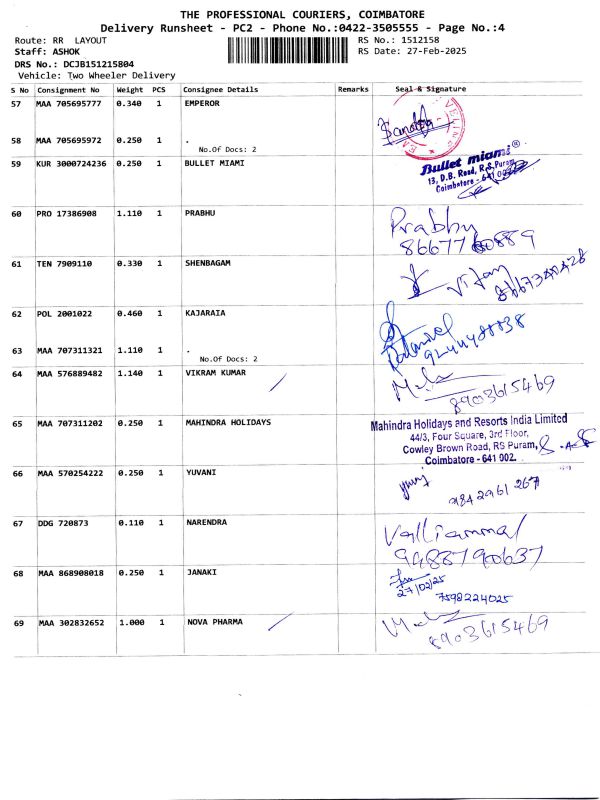 THE PROFESSIONAL COURIERS, COIMBATORE
Delivery Runsheet - PC2 - Phone No.:0422-3505555 - Page No.:4
Route: RR LAYOUT RS No.: 1512158
Staff: ASHOK RS Date: 27-Feb-2025
DRS No.: DCJB151215804
Vehicle: Two Wheeler Delivery
S No Consignment No Weight PCS Consignee Details Remarks Seal & Signature
57 MAA 705695777 0.340 1 EMPEROR
58 MAA 705695972 0.250 1 .
No.Of Docs: 2
59 KUR 3000724236 0.250 1 BULLET MIAMI
Bullet miami®
13, D.B. Road, R.S.Puram
Coimbatore - 641 002
60 PRO 17386908 1.110 1 PRABHU
Prabhu
61 TEN 7909110 0.330 1 SHENBAGAM
Vijay
8667340428
62 POL 2001022 0.460 1 KAJARAIA
63 MAA 707311321 1.110 1 .
No.Of Docs: 2
64 MAA 576889482 1.140 1 VIKRAM KUMAR
8903615469
65 MAA 707311202 0.250 1 MAHINDRA HOLIDAYS
Mahindra Holidays and Resorts India Limited
44/3, Four Square, 3rd Floor,
Cowley Brown Road, RS Puram,
Coimbatore - 641 002.
66 MAA 570254222 0.250 1 YUVANI
9842961267
67 DDG 720873 0.110 1 NARENDRA
Valliammal
9488790637
68 MAA 868908018 0.250 1 JANAKI
27/02/25
7598224025
69 MAA 302832652 1.000 1 NOVA PHARMA
8903615469